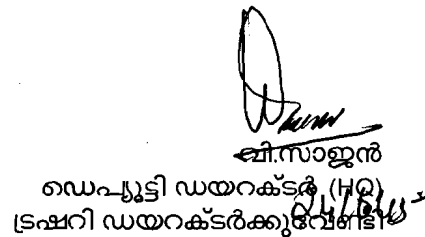 വി.സാജൻ
ഡെപ്യൂട്ടി ഡയറക്ടർ (HQ)
ട്രഷറി ഡയറക്ടർക്കുവേണ്ടി